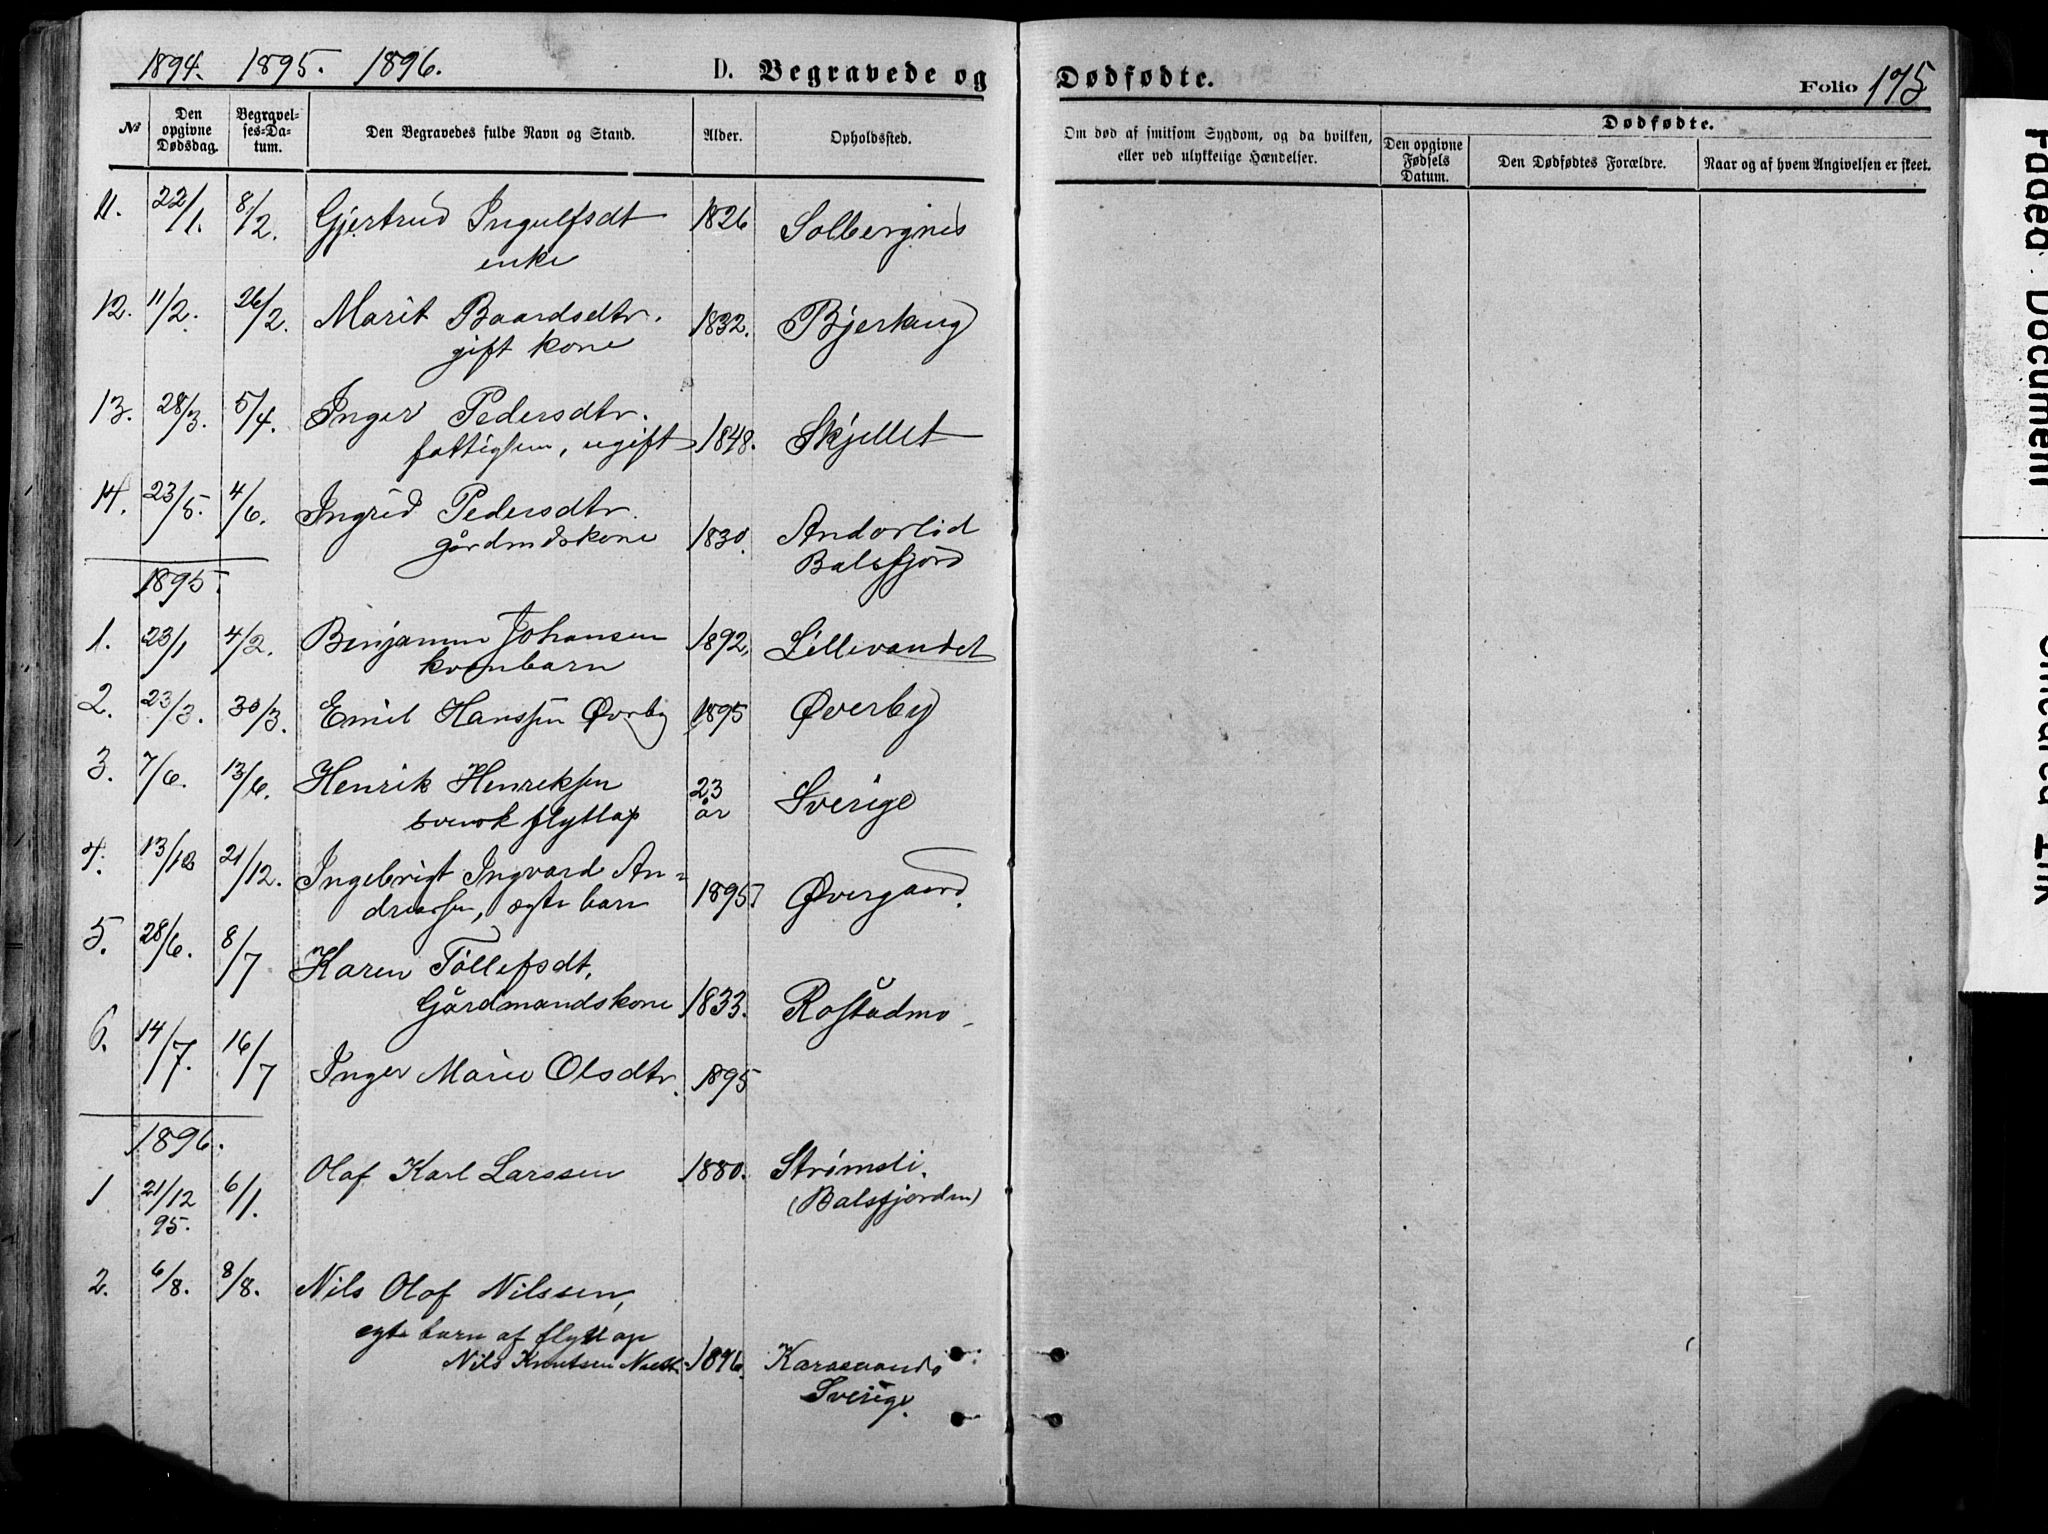 1894. 1895. 1896.
D. Begravede og Dødfødte.
Folio 175
№
Den opgivne Dødsdag.
Begravelses-Datum.
Den Begravedes fulde Navn og Stand.
Alder.
Opholdssted.
Om død af smitsom Sygdom, og da hvilken, eller ved ulykkelige Hændelser.
Dødfødte.
Den opgivne Fødsels Datum.
Den Dødfødtes Forældre.
Naar og af hvem Angivelsen er skeet.
11. 22/1. 8/2. Gjertrud Ingulfsdt 1826 Solbergnes
enke
12. 11/2. 26/2. Marit Baardsdtr. 1832. Bjerkeng
gift kone
13. 28/3. 5/4. Inger Pedersdtr.
fattiglem, ugift 1848. Skjellet
14. 23/5. 4/6. Ingrid Pedersdtr.
gårdmdskone 1830. Andorlid
Balsfjord
1895.
1. 23/1 4/2. Benjamin Johansen 1892. Lillevandet
kvenbarn
2. 23/3. 30/3. Emil Hanssen Øvrby 1895 Øverby
3. 7/6. 13/6. Henrik Henriksen 23 år Sverige
svensk flytlap
4. 13/12 21/12. Ingebrigt Ingvard An=
dreassen, ægte barn 1895. Øvergaard.
5. 28/6. 8/7 Karen Tollefsdt,
Gårdmandskone 1833. Rostadmo
6. 14/7. 16/7 Inger Marie Olsdtr. 1895
1896.
1 21/12 95. 6/1. Olaf Karl Larssen 1880. Strømsli.
(Balsfjorden)
2. 6/8. 8/8. Nils Olaf Nilssen,
egte barn af flytlap
Nils Knutsen 1896. Karesuando
Sverige.
Faded Document
Smeared Ink